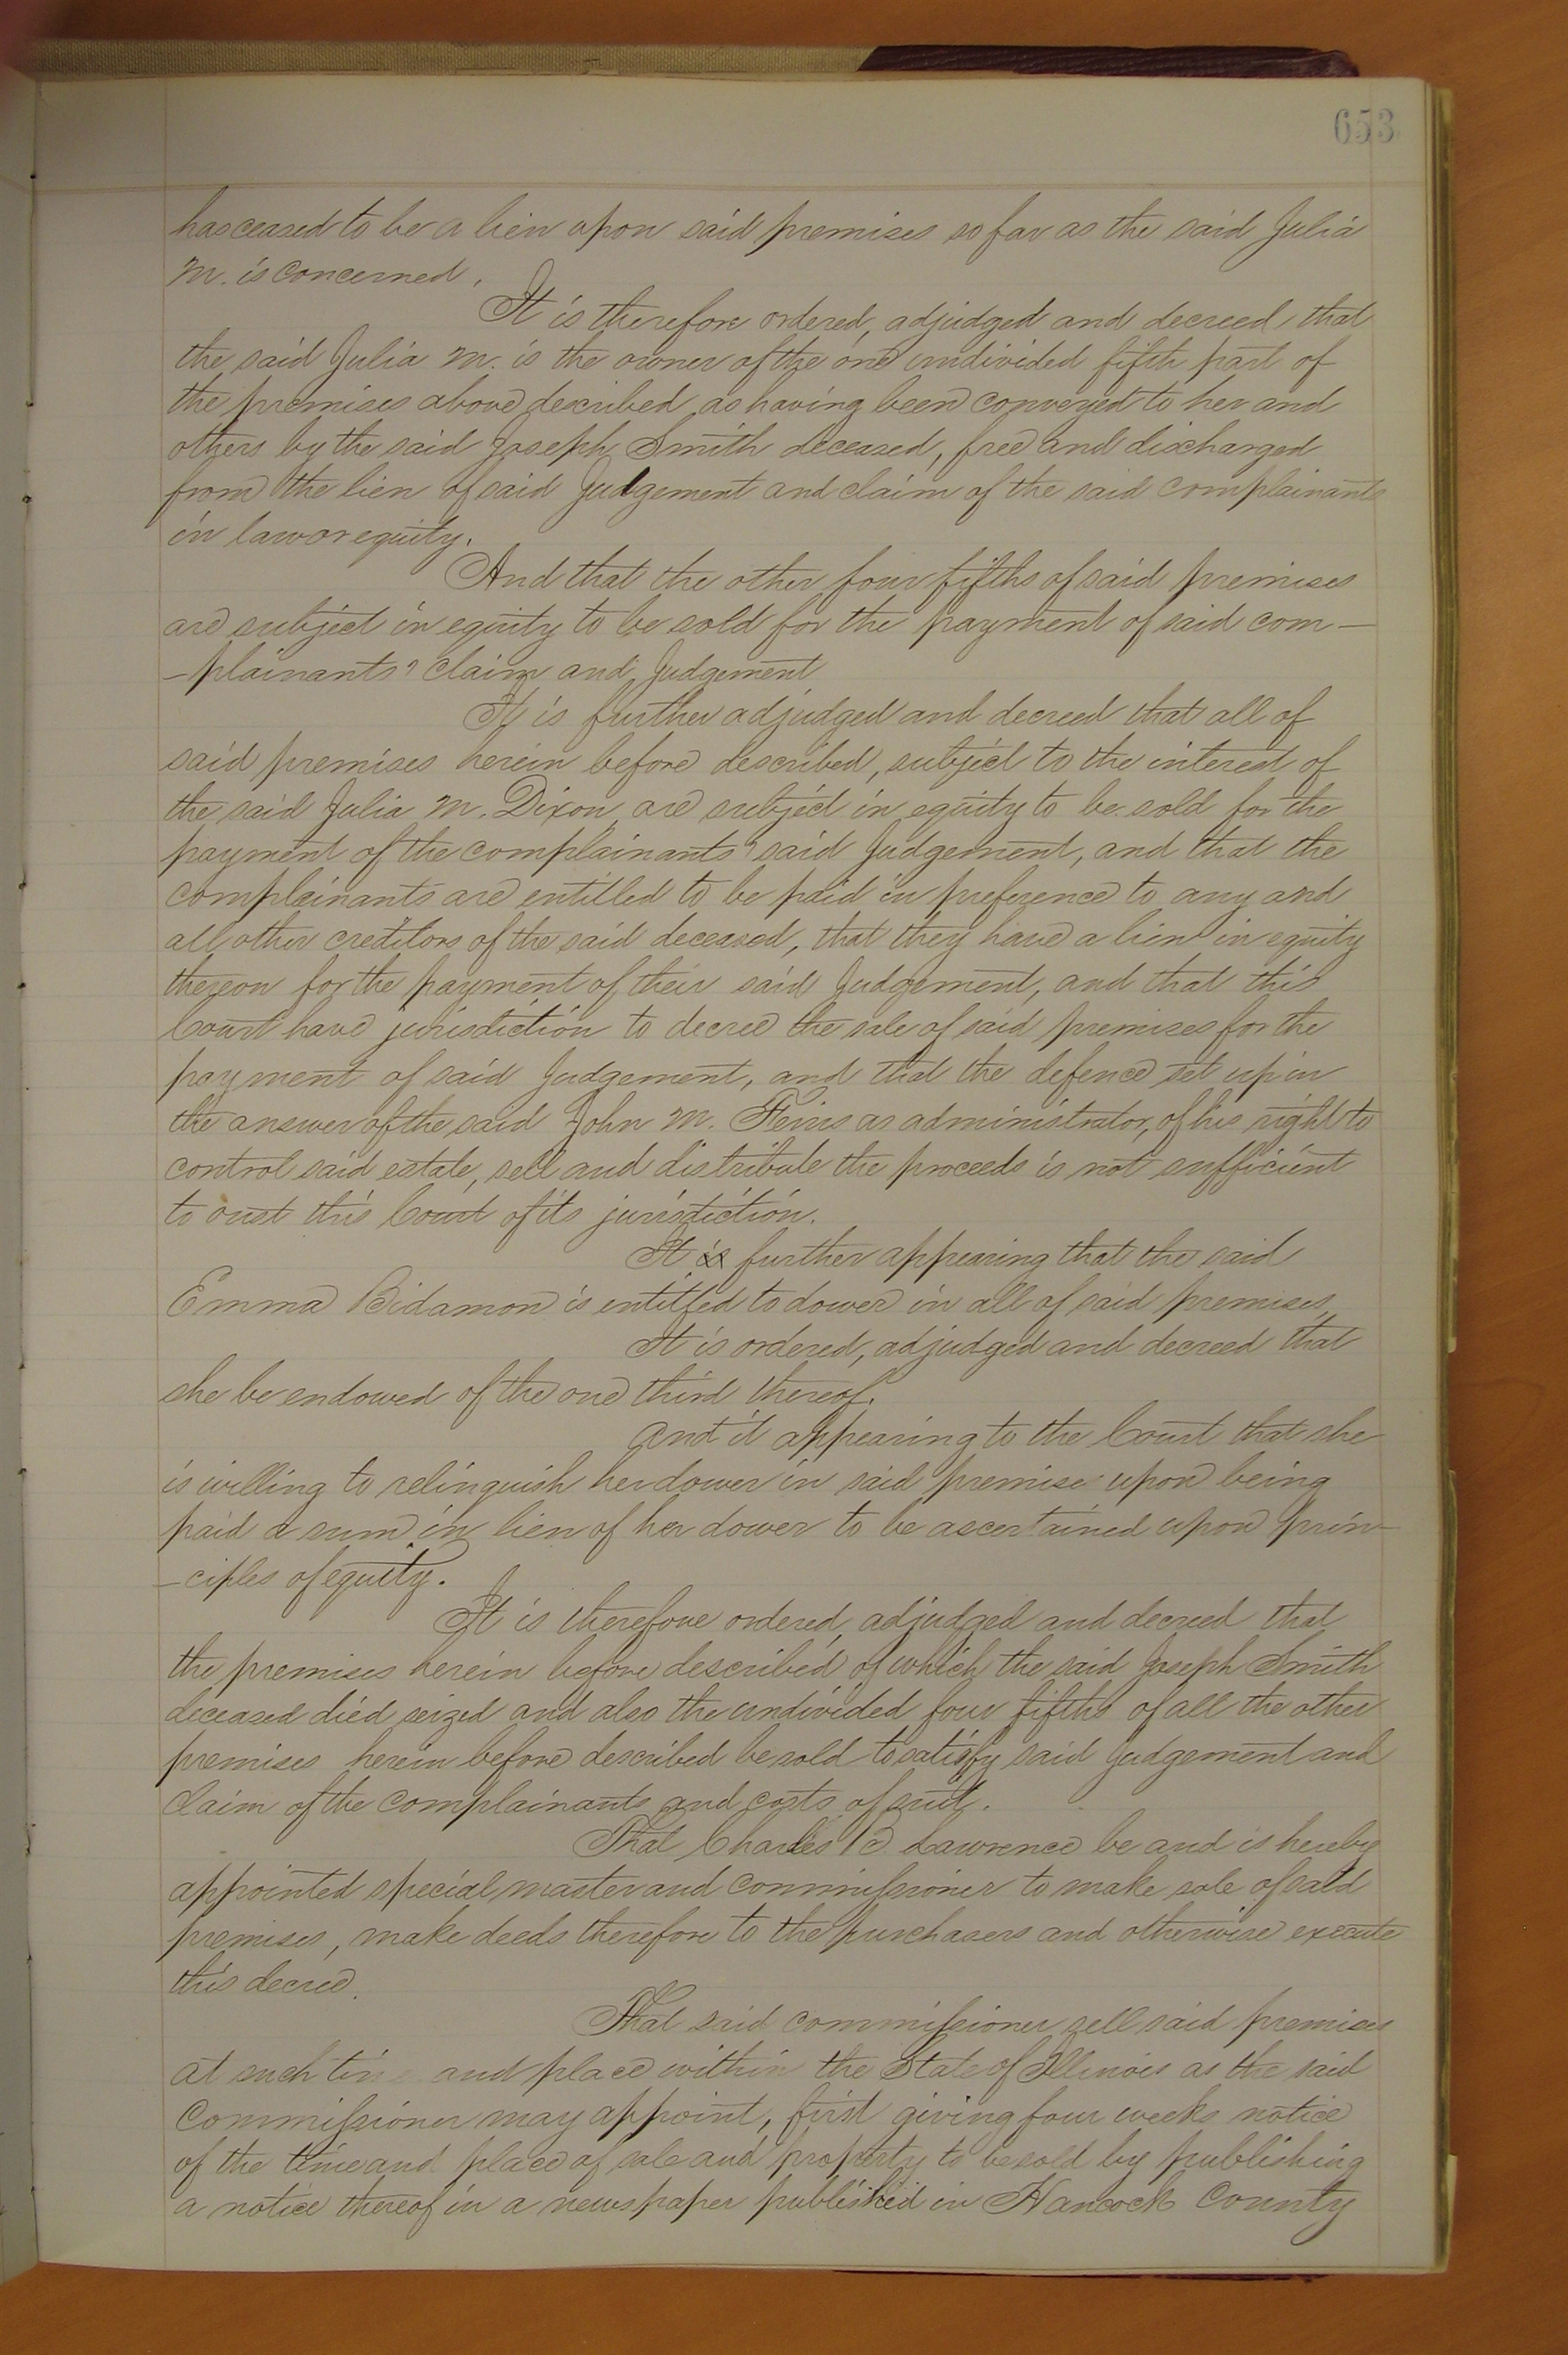 653
has ceased to be a lien upon said premises so far as the said Julia
M. is concerned.
It is therefore ordered, adjudged and decreed, that
the said Julia M. is the owner of the one undivided fifth part of
the premises above described, as having been conveyed to her and
others by the said Joseph Smith deceased, free and discharged
from the lien of said Judgement and claim of the said complainants
in law or equity.
And that the other four fifths of said premises
are subject in equity to be sold for the payment of said com-
-plainants' claim and Judgement
It is further adjudged and decreed that all of
said premises herein before described, subject to the interest of
the said Julia M. Dixon are subject in equity to be sold for the
payment of the complainants' said Judgement, and that the
complainants are entitled to be paid in preference to any and
all other creditors of the said deceased, that they have a lien in equity
thereon for the payment of their said Judgement, and that this
Court have jurisdiction to decree the sale of said premises for the
payment of said Judgement, and that the defence set up in
the answer of the said John M. Ferris as administrator, of his right to
control said estate, sell and distribute the proceeds is not sufficient
to oust this Court of its jurisdiction.
It is further appearing that the said
Emma Bidamon is entitled to dower in all of said premises,
It is ordered, adjudged and decreed that
she be endowed of the one third thereof.
And it appearing to the Court that she
is willing to relinquish her dower in said premise upon being
paid a sum in lieu of her dower to be ascertained upon prin-
-ciples of equity.
It is therefore ordered, adjudged and decreed that
the premises herein before described of which the said Joseph Smith
deceased died seized and also the undivided four fifths of all the other
premises herein before described be sold to satisfy said Judgement and
claim of the complainants and costs of suit.
That Charles B. Lawrence be and is hereby
appointed special master and commissioner to make sale of said
premises, make deeds therefore to the purchasers and otherwise execute
this decree.
That said commissioner sell said premises
at such and place within the State of Illinois as the said
Commissioner may appoint, first giving four weeks notice
of the time and place of sale and property to be sold by publishing
a notice thereof in a newspaper published in Hancock County